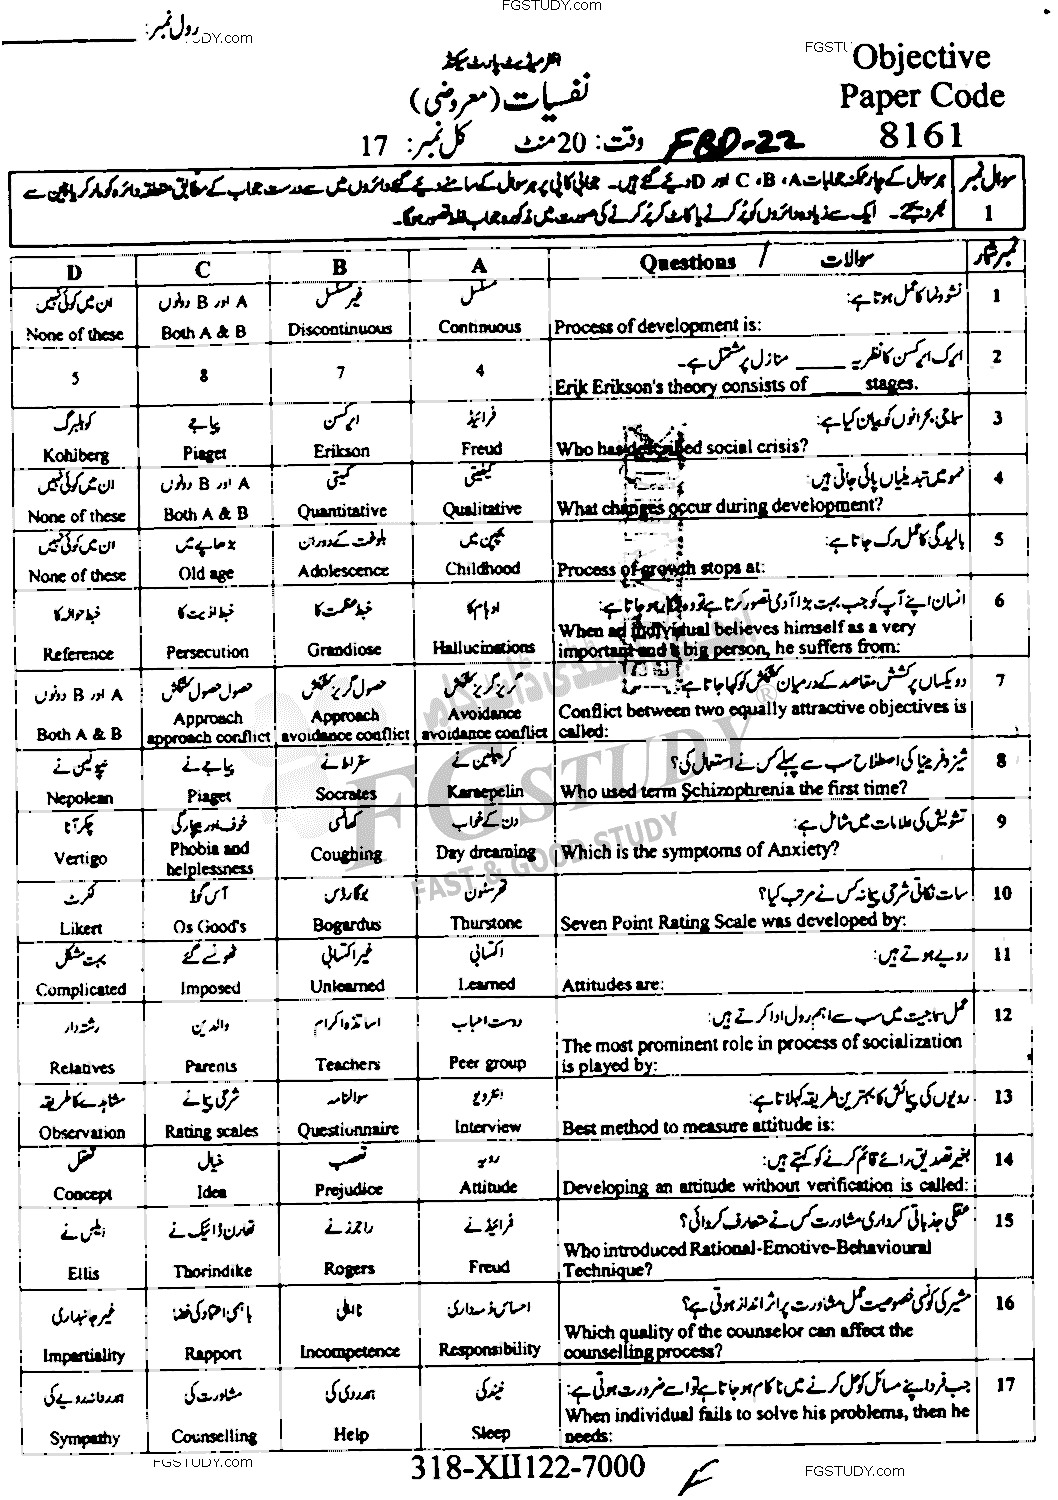 FGSTUDY.com
رول نمبر:
UDY.com
FGSTU
Objective
Paper Code
8161
انٹرمیڈیٹ پارٹ سیکنڈ
نفسیات (معروضی)
وقت: 20 منٹ کل نمبر: 17
FBD-22
سوال نمبر 1
ہر سوال کے چار ممکنہ جوابات A، B، C اور D دیئے گئے ہیں۔ جوابی کاپی پر ہر سوال کے سامنے دیئے گئے دائروں میں سے درست جواب کے مطابق متعلقہ دائرہ کو مارکر یا پین سے
بھر دیجئے۔ ایک سے زیادہ دائروں کو پُر کرنے یا کاٹ کر پُر کرنے کی صورت میں مذکورہ جواب غلط تصور ہوگا۔
D C B A Questions / سوالات نمبر شمار
ان میں کوئی نہیں A اور B دونوں غیر مسلسل مسلسل نشوونما کا عمل ہوتا ہے: 1
None of these Both A & B Discontinuous Continuous Process of development is:
ایرک ایرکسن کا نظریہ _____ منازل پر مشتمل ہے۔ 2
5 8 7 4 Erik Erikson's theory consists of _____ stages.
کوہلبرگ پیاجے ایرکسن فرائیڈ سماجی بحرانوں کو بیان کیا ہے: 3
Kohlberg Piaget Erikson Freud Who has described social crisis?
ان میں کوئی نہیں A اور B دونوں کمیتی کیفیتی نمو میں تبدیلیاں پائی جاتی ہیں: 4
None of these Both A & B Quantitative Qualitative What changes occur during development?
ان میں کوئی نہیں بڑھاپے میں بلوغت کے دوران بچپن میں بالیدگی کا عمل رک جاتا ہے: 5
None of these Old age Adolescence Childhood Process of growth stops at:
خبط حوالہ کا خبط اذیت کا خبط عظمت کا اوہام کا انسان اپنے آپ کو جب بہت بڑا آدمی تصور کرتا ہے تو وہ شکار ہو جاتا ہے: 6
Reference Persecution Grandiose Hallucinations When an individual believes himself as a very
important and a big person, he suffers from:
A اور B دونوں حصول حصول کشمکش حصول گریز کشمکش گریز گریز کشمکش دو یکساں پرکشش مقاصد کے درمیان کشمکش کو کہا جاتا ہے: 7
Both A & B Approach approach conflict Approach avoidance conflict Avoidance avoidance conflict Conflict between two equally attractive objectives is
called:
نپولین نے پیاجے نے سقراط نے کرپلین نے شیزوفرینیا کی اصطلاح سب سے پہلے کس نے استعمال کی؟ 8
Nepolean Piaget Socrates Karaepelin Who used term Schizophrenia the first time?
چکر آنا خوف اور بیچارگی کھانسی دن کے خواب تشویش کی علامات میں شامل ہے: 9
Vertigo Phobia and helplessness Coughing Day dreaming Which is the symptoms of Anxiety?
لکرٹ آس گوڈ بوگارڈس تھرسٹون سات نکاتی شرحی پیمانہ کس نے مرتب کیا؟ 10
Likert Os Good's Bogardus Thurstone Seven Point Rating Scale was developed by:
بہت مشکل ٹھونسے گئے غیر اکتسابی اکتسابی رویے ہوتے ہیں: 11
Complicated Imposed Unlearned Learned Attitudes are:
رشتہ دار والدین اساتذہ اکرام دوست احباب عمل سماجیت میں سب سے اہم رول ادا کرتے ہیں: 12
Relatives Parents Teachers Peer group The most prominent role in process of socialization
is played by:
مشاہدے کا طریقہ شرحی پیمانے سوالنامہ انٹرویو رویوں کی پیمائش کا بہترین طریقہ کہلاتا ہے: 13
Observation Rating scales Questionnaire Interview Best method to measure attitude is:
تعقل خیال تعصب رویہ بغیر تصدیق رائے قائم کرنے کو کہتے ہیں: 14
Concept Idea Prejudice Attitude Developing an attitude without verification is called:
ایلس نے تھارن ڈائیک نے راجرز نے فرائیڈ نے عقلی جذباتی کرداری مشاورت کس نے متعارف کروائی؟ 15
Ellis Thorindike Rogers Freud Who introduced Rational-Emotive-Behavioural
Technique?
غیر جانبداری باہمی اعتماد کی فضا نااہلی احساس ذمہ داری مشیر کی کونسی خصوصیت عمل مشاورت پر اثر انداز ہوتی ہے؟ 16
Impartiality Rapport Incompetence Responsibility Which quality of the counselor can affect the
counselling process?
ہمدردانہ رویے کی مشاورت کی ہمدردی کی نیند کی جب فرد اپنے مسائل کو حل کرنے میں ناکام ہو جاتا ہے تو اسے ضرورت ہوتی ہے: 17
Sympathy Counselling Help Sleep When individual fails to solve his problems, then he
needs:
FGSTUDY
FAST & GOOD STUDY
®
FGSTUDY.com
318-XII122-7000
FGSTUDY.com